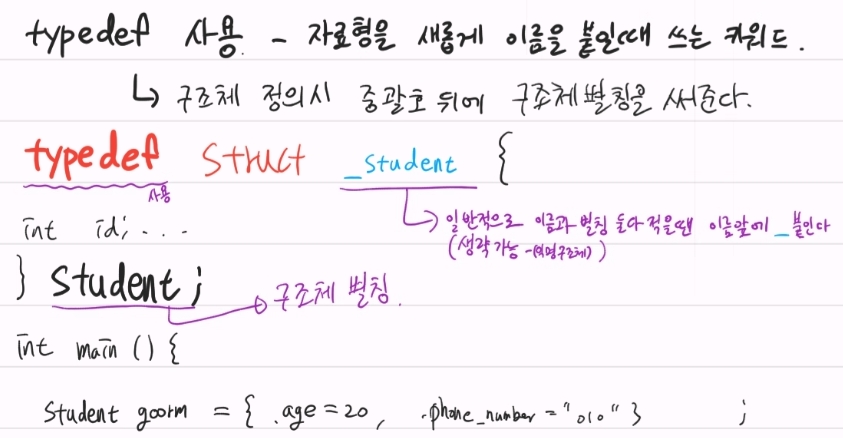 typedef 사용 - 자료형을 새롭게 이름을 붙일때 쓰는 키워드.
↳ 구조체 정의시 중괄호 뒤에 구조체 별칭을 써준다.
typedef struct _student {
사용
→ 일반적으로 이름과 별칭 둘다 적을땐 이름앞에 _붙인다
(생략가능-(익명구조체))
int id; ...
} student;
→ 구조체 별칭.
int main () {
Student goorm = { .age = 20, .phone_number = "010" } ;